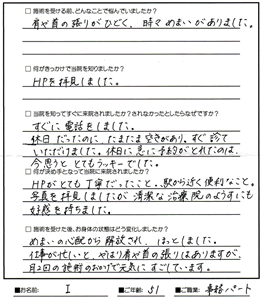 □施術を受ける前、どんなことで悩んでいましたか?
肩や首の張りがひどく、時々めまいがありました。
□何がきっかけで当院を知りましたか?
HPを拝見しました。
□当院を知ってすぐに来院されましたか?されなかったとしたらなぜですか?
すぐに電話をしました。
休日だったのに、たまたま空きがあり、すぐ診て
いただけました。休日に急に予約がとれたのは、
今思うと とてもラッキーでした。
□何が決め手となって当院に来院されましたか?
HPがとても丁寧だったこと。駅から近く便利なこと。
写真を拝見しましたが 清潔な治療院のようすにも
好感を持ちました。
□施術を受けた後、お身体の状態はどう変化しましたか?
めまいの心配から 解放され、ほっとしました。
仕事が忙しいと、やはり肩や首の張りはありますが、
月2回の施術のおかげで元気にすごしています。
■お名前: I ■ご年齢: 51 ■ご職業: 事務パート